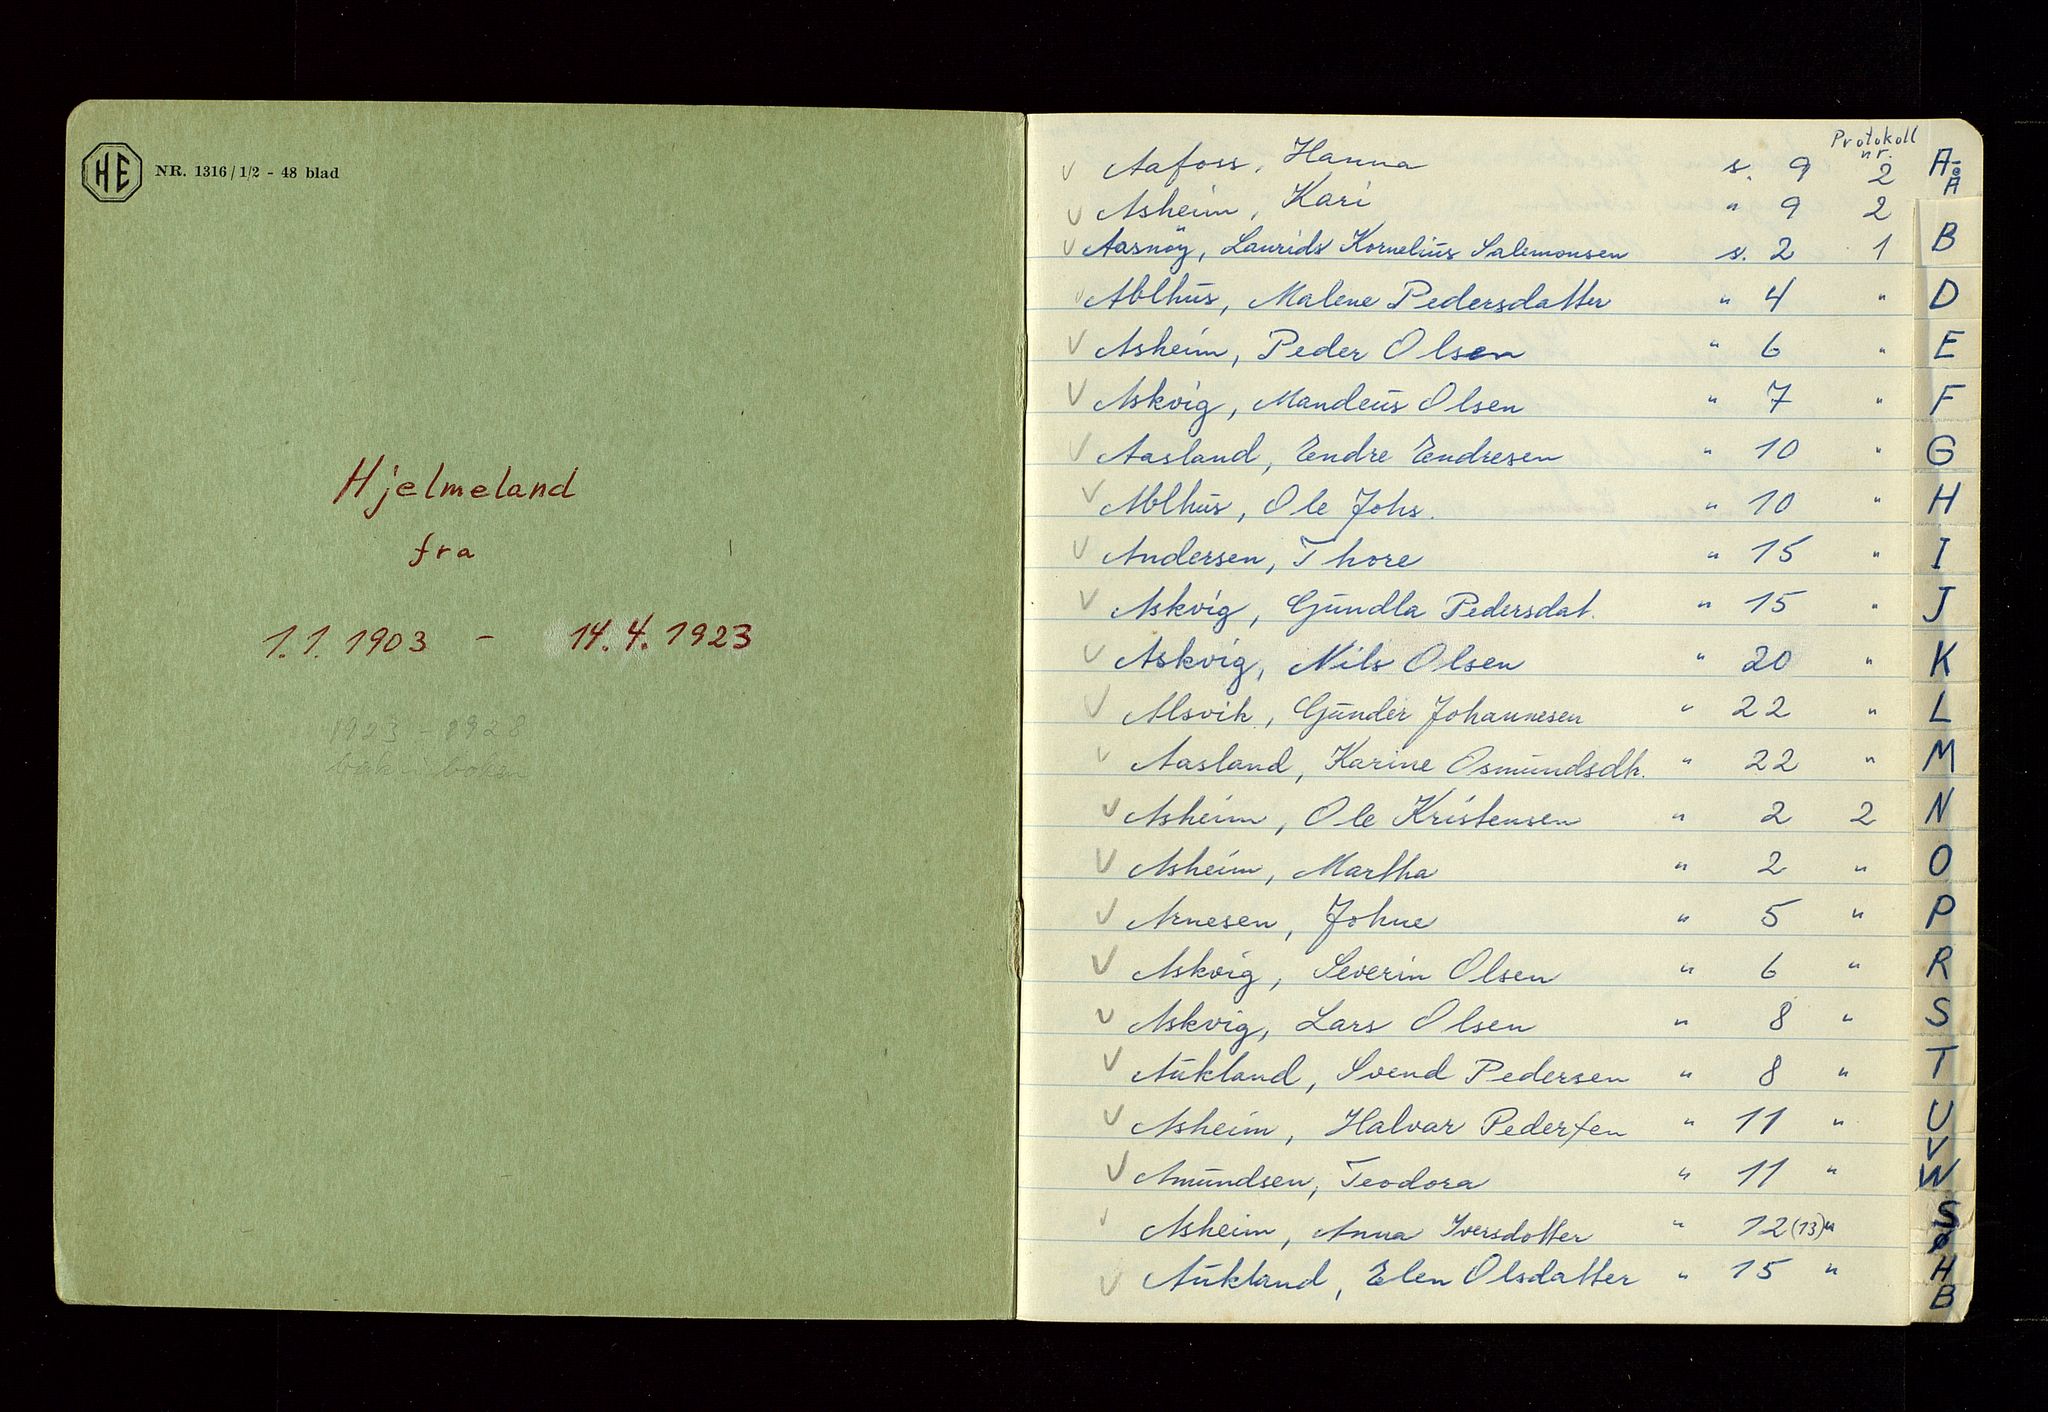 HE NR. 1316/1/2 - 48 blad
Hjelmeland
fra
1.1.1903 - 14.4.1923
1923 - 1928
bak i boken
Protokoll
nr.
Aafoss, Hanna s. 9 2
Asheim, Kari " 9 2
Aasnøy, Laurids Kornelius Salemonsen s. 2 1
Ablhus, Malene Pedersdatter " 4 "
Asheim, Peder Olsen " 6 "
Askvig, Mandeus Olsen " 7 "
Aasland, Endre Endresen " 10 "
Ablhus, Ole Johs. " 10 "
Andersen, Thore " 15 "
Askvig, Gundla Pedersdat. " 15 "
Askvig, Nils Olsen " 20 "
Alsvik, Gunder Johannesen " 22 "
Aasland, Karine Osmundsdtr. " 22 "
Asheim, Ole Kristensen " 2 2
Asheim, Martha " 2 "
Arnesen, Johne " 5 "
Askvig, Severin Olsen " 6 "
Askvig, Lars Olsen " 8 "
Aukland, Svend Pedersen " 8 "
Asheim, Halvar Pedersen " 11 "
Amundsen, Teodora " 11 "
Asheim, Anna Iversdotter " 12 (13) "
Aukland, Elen Olsdatter " 15 "
A-Å
B
D
E
F
G
H
I
J
K
L
M
N
O
P
R
S
T
U
V
W
S
Ø
H
B